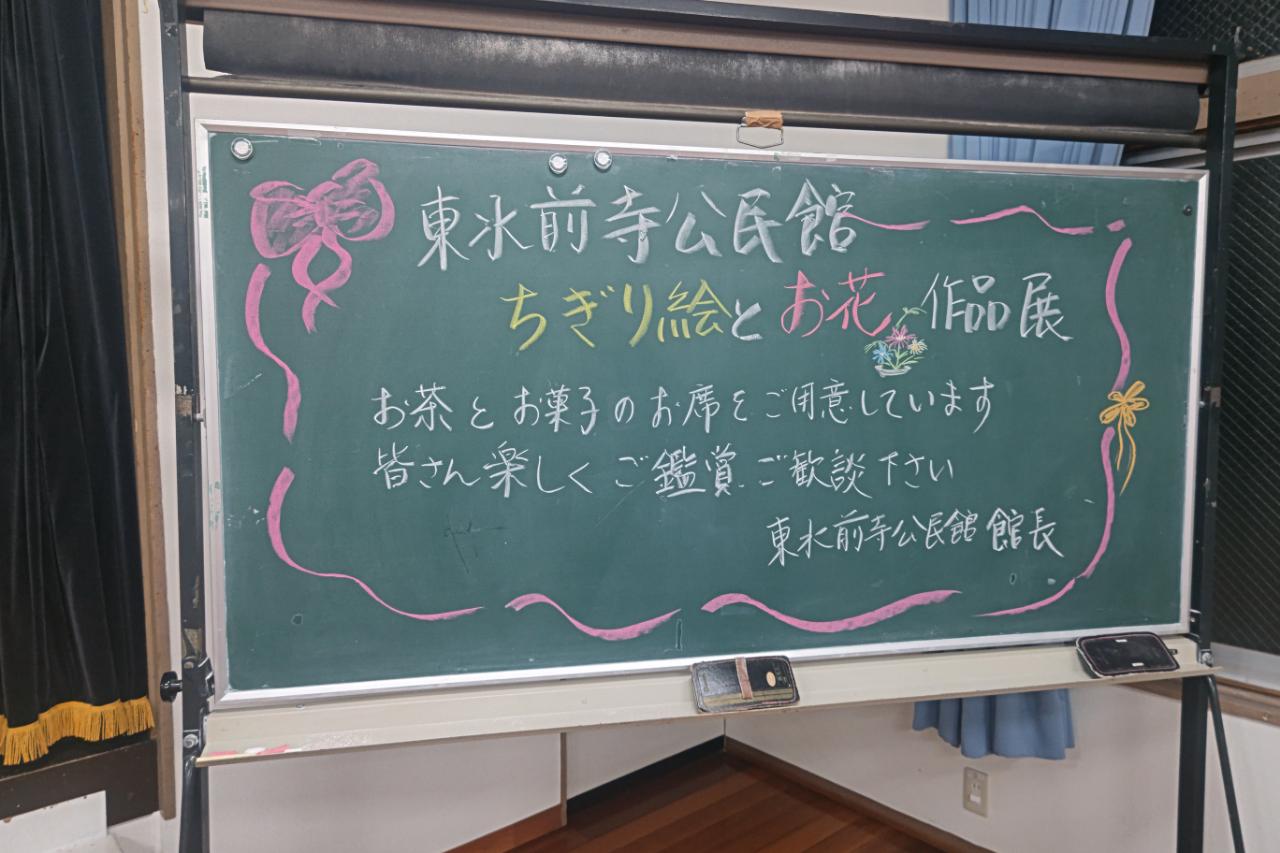 東水前寺公民館
ちぎり絵とお花作品展
お茶とお菓子のお席をご用意しています
皆さん楽しくご鑑賞.ご歓談下さい
東水前寺公民館館長